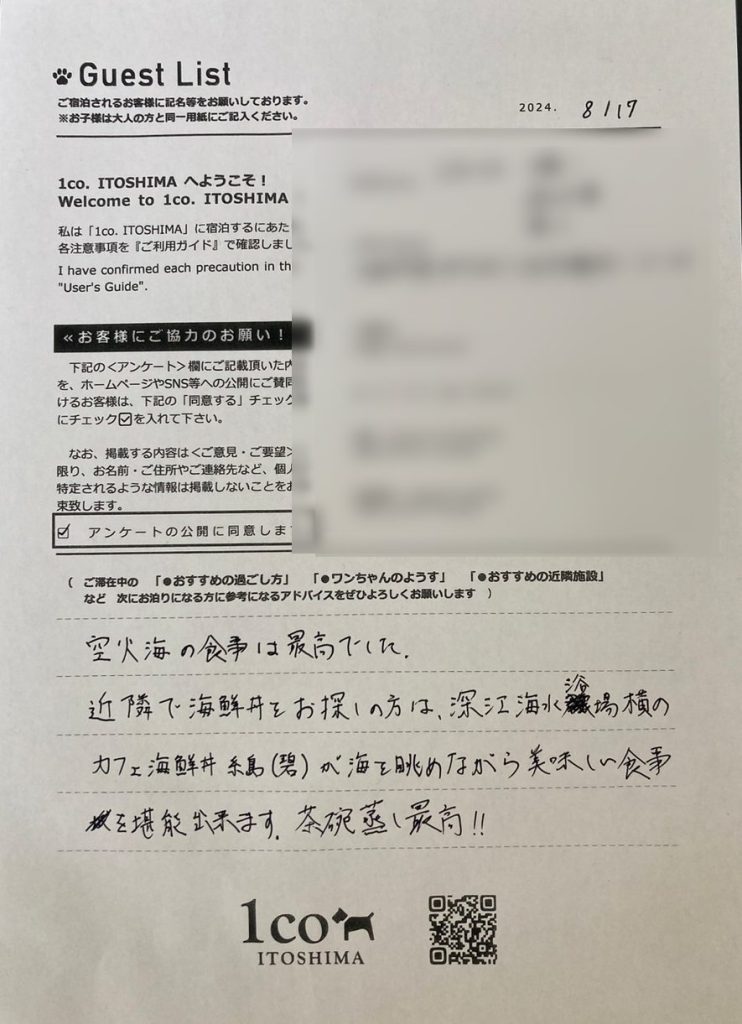 Guest List
ご宿泊されるお客様に記名等をお願いしております。
※お子様は大人の方と同一用紙にご記入ください。
2024. 8/17
1co. ITOSHIMA へようこそ！
Welcome to 1co. ITOSHIMA
私は「1co. ITOSHIMA」に宿泊するにあた
各注意事項を『ご利用ガイド』で確認しまし
I have confirmed each precaution in th
"User's Guide".
«お客様にご協力のお願い！
下記の＜アンケート＞欄にご記載頂いた内
を、ホームページやSNS等への公開にご賛同
けるお客様は、下記の「同意する」チェック
にチェック☑を入れて下さい。
なお、掲載する内容は＜ご意見・ご要望＞
限り、お名前・ご住所やご連絡先など、個人
特定されるような情報は掲載しないことをお
束致します。
☑ アンケートの公開に同意しま
（ ご滞在中の 「●おすすめの過ごし方」 「●ワンちゃんのようす」 「●おすすめの近隣施設」
など 次にお泊りになる方に参考になるアドバイスをぜひよろしくお願いします ）
空火海の食事は最高でした。
近隣で海鮮丼をお探しの方は、深江海水浴場横の
カフェ海鮮丼 糸島(碧)が海を眺めながら美味しい食事
を堪能出来ます。茶碗蒸し最高!!
1co
ITOSHIMA